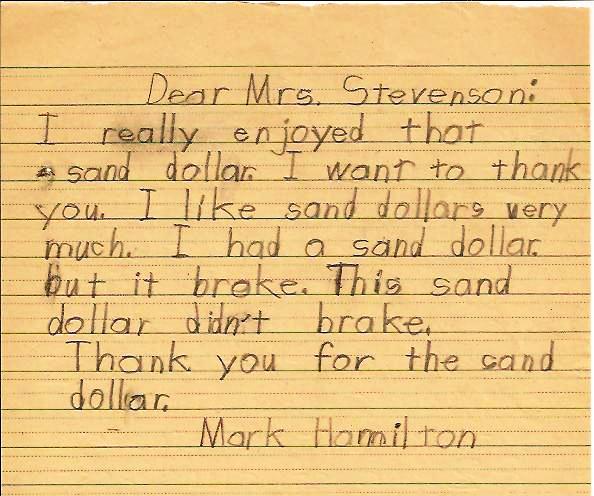 Dear Mrs. Stevenson:
I really enjoyed that
sand dollar. I want to thank
you. I like sand dollars very
much. I had a sand dollar.
but it broke. This sand
dollar didn't brake.
Thank you for the sand
dollar.
Mark Hamilton